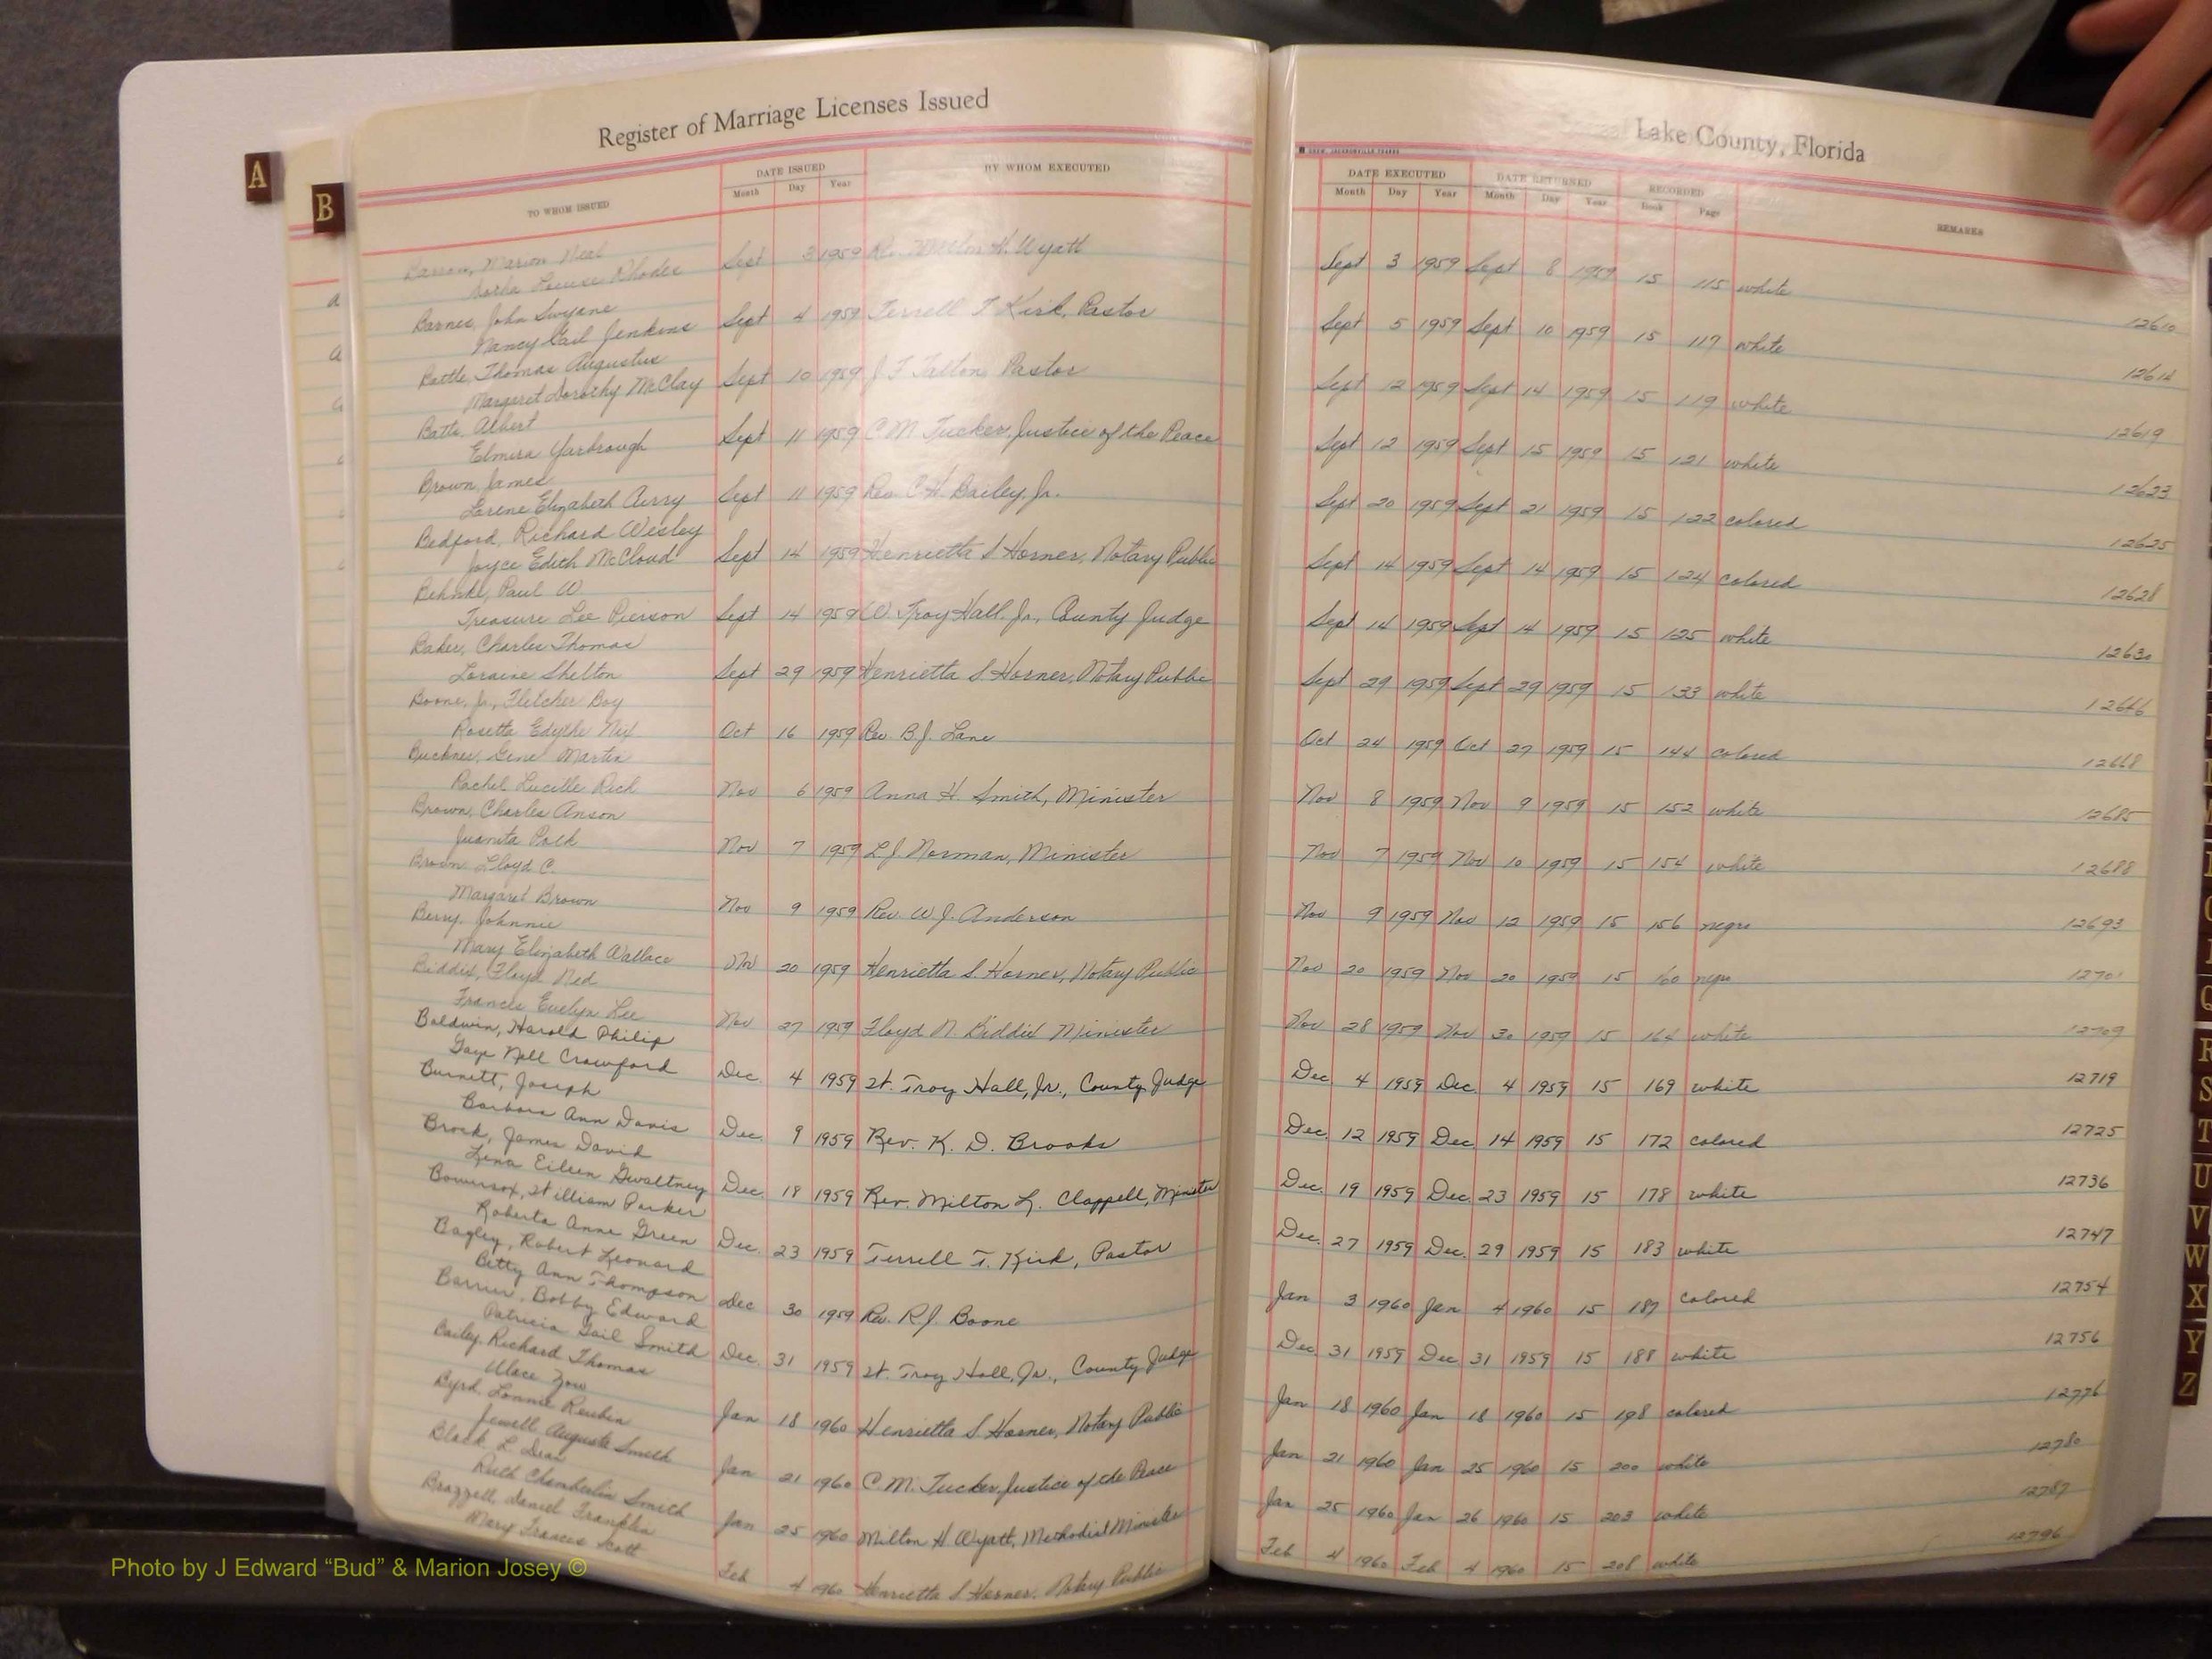 Register of Marriage Licenses Issued
Lake County, Florida
A
B
TO WHOM ISSUED
DATE ISSUED
Month Day Year
BY WHOM EXECUTED
DATE EXECUTED
Month Day Year
DATE RETURNED
Month Day Year
RECORDED
Book Page
REMARKS
Marion Neal
Louise Rhodes
Sept 3 1959 H. Wyatt
Sept 3 1959 Sept 8 1959 15 115 white
12610
Barnes, John Swyane
Nancy Gail Jenkins
Sept 4 1959 Terrell T Kirk, Pastor
Sept 5 1959 Sept 10 1959 15 117 white
Battle, Thomas Augustus
Margaret Dorothy McClay
Sept 10 1959 J F Tatton Pastor
Sept 12 1959 Sept 14 1959 15 119 white
12619
Batts, Albert
Elmira Yarbrough
Sept 11 1959 C M Tucker, Justice of the Peace
Sept 12 1959 Sept 15 1959 15 121 white
12623
Brown, James
Lorene Elizabeth Avery
Sept 11 1959 Rev C H Bailey, Jr.
Sept 20 1959 Sept 21 1959 15 122 colored
12625
Bedford, Richard Wesley
Joyce Edith McCloud
Sept 14 1959 Henrietta S Horner, Notary Public
Sept 14 1959 Sept 14 1959 15 124 colored
12628
Behnke, Paul W
Treasure Lee Pierson
Sept 14 1959 W. Troy Hall. Jr., County Judge
Sept 14 1959 Sept 14 1959 15 125 white
12630
Baker, Charles Thomas
Loraine Shelton
Sept 29 1959 Henrietta S Horner, Notary Public
Sept 29 1959 Sept 29 1959 15 133 white
12646
Boone, Jr, Fletcher Boy
Rosetta Edythe Nix
Oct 16 1959 Rev. B.J. Lane
Oct 24 1959 Oct 27 1959 15 144 colored
12668
Buckner, Gene Martin
Rachel Lucille Rich
Nov 6 1959 Anna H. Smith, Minister
Nov 8 1959 Nov 9 1959 15 152 white
12685
Brown, Charles Anson
Juanita Polk
Nov 7 1959 L J. Norman, Minister
Nov 7 1959 Nov 10 1959 15 154 white
12688
Brown Lloyd C.
Margaret Brown
Nov 9 1959 Rev. W.J. Anderson
Nov 9 1959 Nov 12 1959 15 156 negro
12693
Berry, Johnnie
Mary Elizabeth Wallace
Nov 20 1959 Henrietta S. Horner, Notary Public
Nov 20 1959 Nov 20 1959 15 160 negro
12701
Biddix, Floyd Ned
Frances Evelyn Lee
Nov 27 1959 Floyd N Biddix Minister
Nov 28 1959 Nov 30 1959 15 164 white
12709
Baldwin, Harold Philip
Gaye Nell Crawford
Dec. 4 1959 W. Troy Hall, Jr., County Judge
Dec 4 1959 Dec. 4 1959 15 169 white
12719
Burnett, Joseph
Barbara Ann Davis
Dec. 9 1959 Rev. K. D. Brooks
Dec. 12 1959 Dec. 14 1959 15 172 colored
12725
Brock, James David
Lena Eileen Gwaltney
Dec. 18 1959 Rev. Milton L. Clappell, Minister
Dec. 19 1959 Dec. 23 1959 15 178 white
12736
Bowersox, William Parker
Roberta Anne Green
Dec. 23 1959 Terrell T. Kirk, Pastor
Dec. 27 1959 Dec. 29 1959 15 183 white
12747
Bagley, Robert Leonard
Betty Ann Thompson
Dec 30 1959 Rev. R.J. Boone
Jan 3 1960 Jan 4 1960 15 187 colored
12754
Barrier, Bobby Edward
Patricia Gail Smith
Dec. 31 1959 W. Troy Hall, Jr., County Judge
Dec 31 1959 Dec 31 1959 15 188 white
12756
Bailey, Richard Thomas
Jan 18 1960 Henrietta S Horner, Notary Public
Jan 18 1960 Jan 18 1960 15 198 colored
12776
Byrd, Lonnie Reubin
Jewell Augusta Smith
Jan 21 1960 C M. Tucker, Justice of the Peace
Jan 21 1960 Jan 25 1960 15 200 white
12780
Black L Dean
Ruth Chamberlin Smith
Jan 25 1960 Milton H Wyatt, Methodist Minister
Jan 25 1960 Jan 26 1960 15 203 white
12787
Brazzell, Daniel Franklin
Mary Frances Scott
Feb 4 1960 Henrietta S Horner. Notary Public
Feb 4 1960 Feb 4 1960 15 208 white
12796
Q
R
S
T
U
V
W
X
Y
Z
Photo by J Edward “Bud” & Marion Josey ©